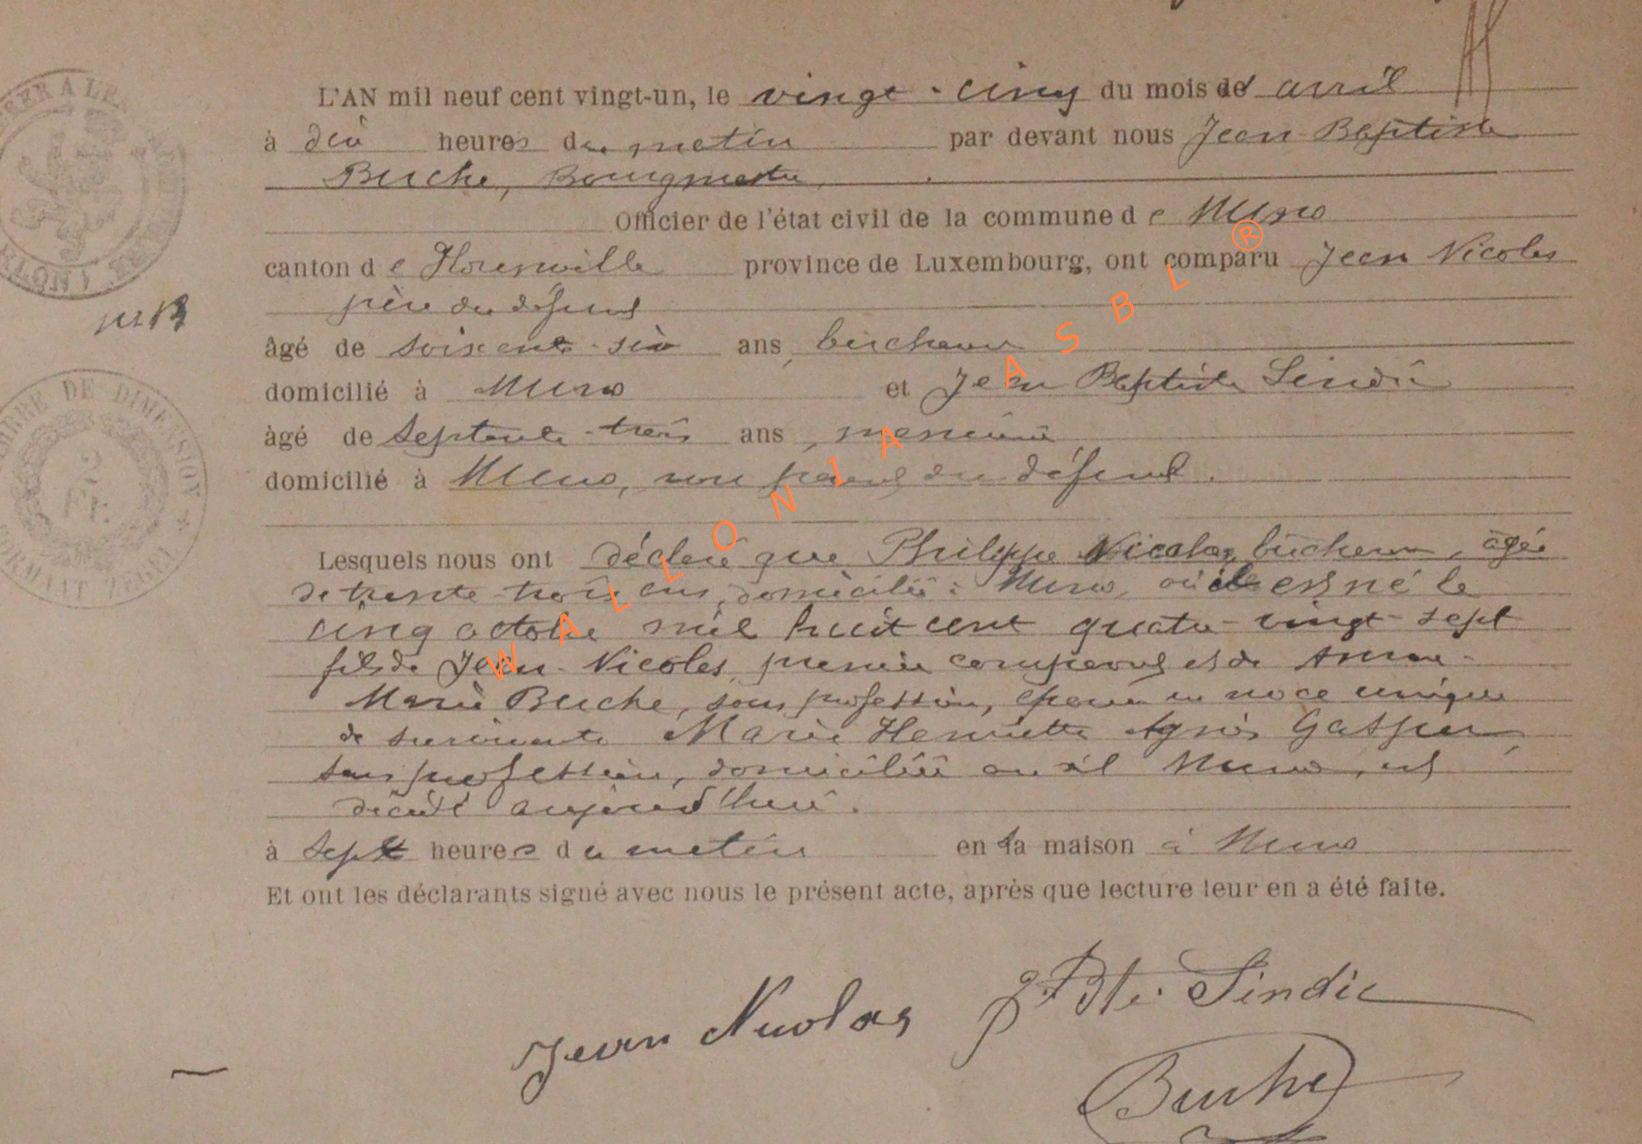 L'AN mil neuf cent vingt-un, le vingt-cinq du mois de avril
à dix heures du matin par devant nous Jean Baptiste
Buche, Bourgmestre,
Officier de l'état civil de la commune de Muno
canton de Florenville province de Luxembourg, ont comparu Jean Nicolas
père du défunt
âgé de soixante-six ans, bûcheron
domicilié à Muno et Jean Baptiste Sindic
âgé de septante-trois ans, menuisier
domicilié à Muno, non parent du défunt.
Lesquels nous ont déclaré que Philippe Nicolas, bûcheron, âgé
de trente-trois ans, domicilié à Muno, où il est né le
cinq octobre mil huit cent quatre-vingt-sept
fils de Jean Nicolas, premier comparant et de Anne-
Marie Buche, sans profession, époux en noce unique
de survivante Marie Henriette Agnès Gaspar,
sans profession, domiciliée au dit Muno, est
décédé aujourd'hui.
à sept heures du matin en sa maison à Muno
Et ont les déclarants signé avec nous le présent acte, après que lecture leur en a été faite.
Jean Nicolas J. Bte. Sindic
Buche
TIMBRE DE DIMENSION
2
Fr.
FORMAAT ZEGEL
WALLONIA ASBL ®